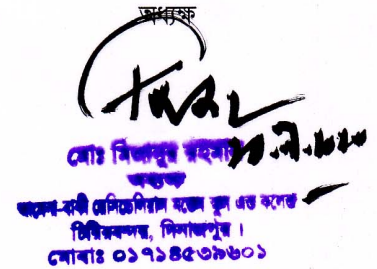 অধ্যক্ষ
মোঃ মিজানুর রহমান
অধ্যক্ষ
আমেনা-বাকী রেসিডেনসিয়াল মডেল স্কুল এন্ড কলেজ
চিরিরবন্দর, দিনাজপুর।
মোবাঃ ০১৭১৪৫৩৯৬০১